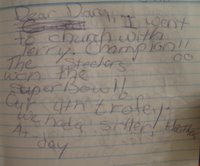 Dear Dang, I went
to church with
Terry. Champian!!
The Steelers
won the
superBowl!
Our 4th trofey.
we had a sitter,
A.
day